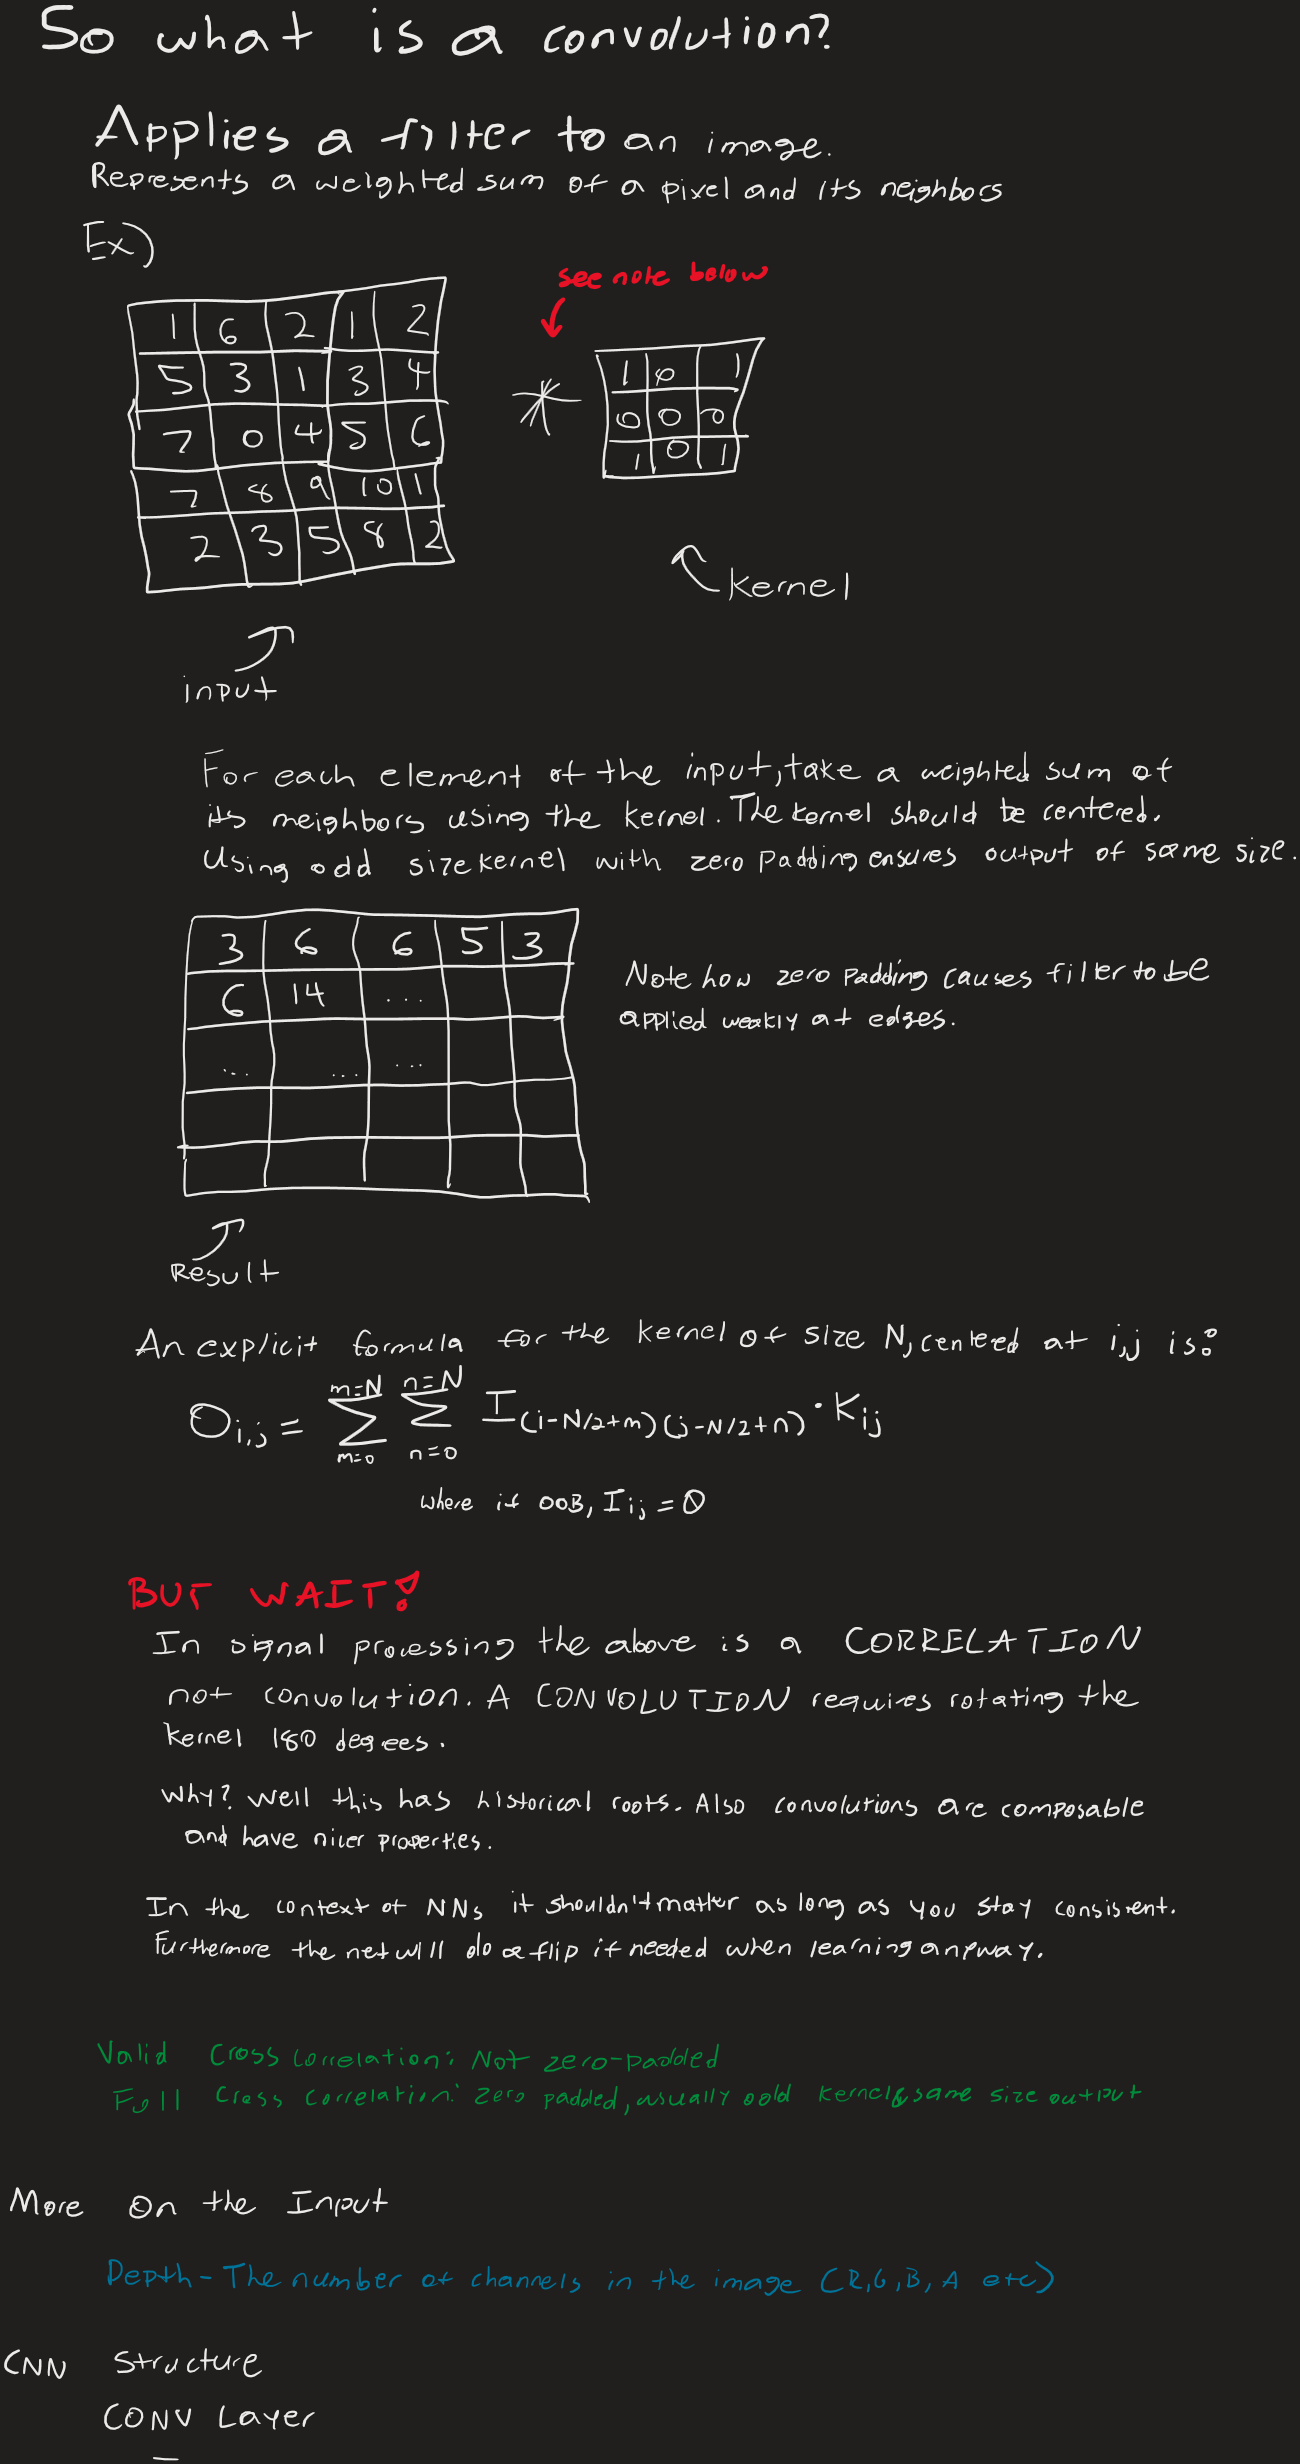 So what is a convolution?
Applies a filter to an image.
Represents a weighted sum of a pixel and its neighbors
Ex)
see note below
1 6 2 1 2
5 3 1 3 4
7 0 4 5 6
7 8 9 10 1
2 3 5 8 2
*
1 0 1
0 0 0
1 0 1
kernel
input
For each element of the input, take a weighted sum of
its neighbors using the kernel. The kernel should be centered.
Using odd size kernel with zero padding ensures output of same size.
3 6 6 5 3
6 14 ...
... ... ...
Note how zero padding causes filter to be
applied weakly at edges.
Result
An explicit formula for the kernel of size N, centered at i,j is:
O_{i,j} = Σ_{m=0}^{m=N} Σ_{n=0}^{n=N} I_{(i-N/2+m)(j-N/2+n)} · K_{ij}
where if OOB, I_{ij} = 0
BUT WAIT!
In signal processing the above is a CORRELATION
not convolution. A CONVOLUTION requires rotating the
kernel 180 degrees.
Why? Well this has historical roots. Also convolutions are composable
and have nicer properties.
In the context of NNs it shouldn't matter as long as you stay consistent.
Furthermore the net will do a flip if needed when learning anyway.
Valid Cross Correlation: Not zero-padded
Full Cross Correlation: Zero padded, usually odd kernel & same size output
More On the Input
Depth - The number of channels in the image (R,G,B, A etc)
CNN Structure
CONV Layer